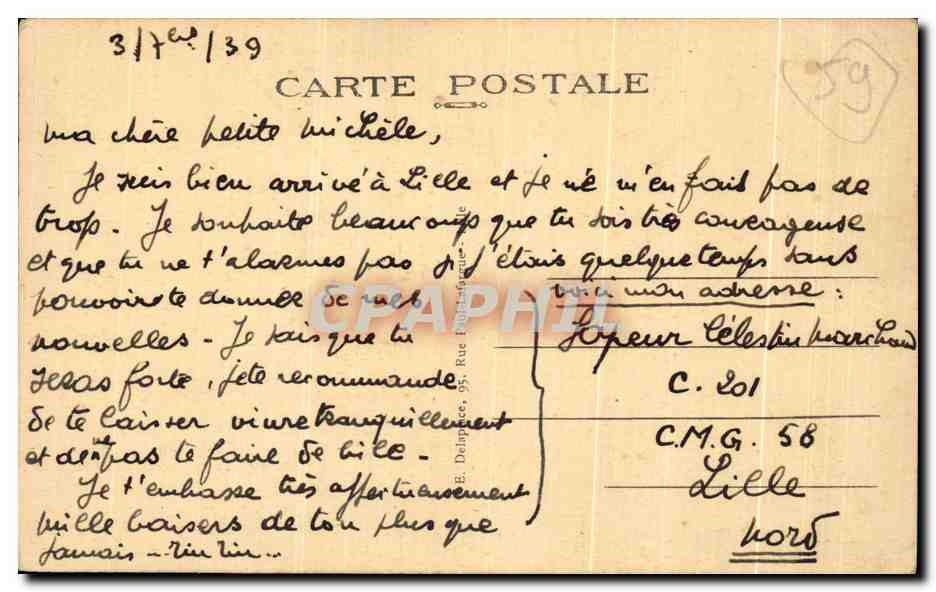 3/7bre/39
59
CARTE POSTALE
ma chère petite Michèle,
Je suis bien arrivé à Lille et je ne m'en fait pas de
trop. Je souhaite beaucoup que tu sois très courageuse
et que tu ne t'alarmes pas si j'étais quelque temps sans
pouvoir te donner de mes
nouvelles - Je sais que tu
seras forte, je te recommande
de te laisser vivre tranquillement
et de ne pas te faire de bile -
Je t'embrasse très affectueusement
mille baisers de ton plus que
jamais - Tin Tin...
voici mon adresse :
Sapeur Célestin Marchand
C. 201
C.M.G. 58
Lille
Nord
E. Delaplace, 95, Rue Paul-Lafargue -
CPAPHIL